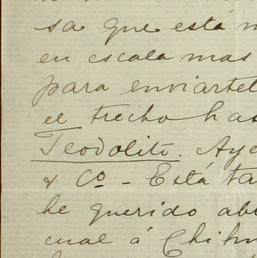 sa que está m
en escala mas
para enviartel
el trecho has
Teodolito. Aye
& Co - Está ta
he querido abu
cual á Chihu